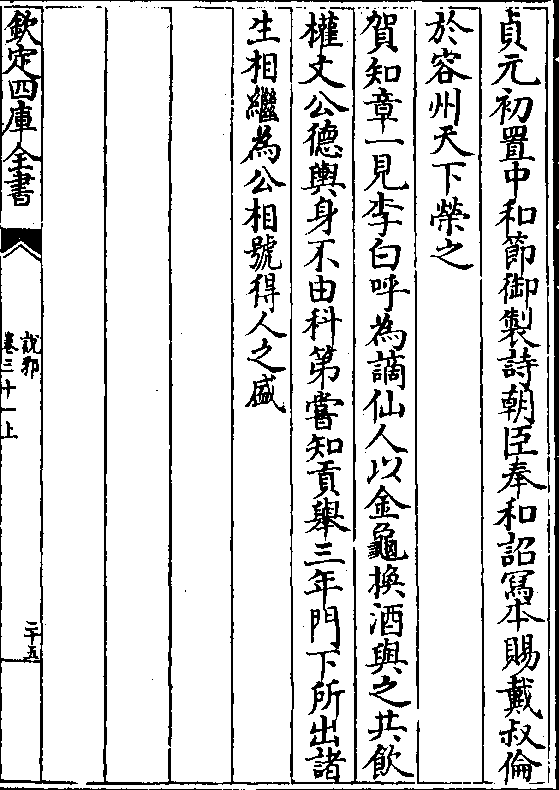 貞元初置中和節御製詩朝臣奉和詔寫本賜戴叔倫
於容州天下榮之
賀知章一見李白呼為謫仙人以金龜換酒與之共飲
權文公德輿身不由科第嘗知貢舉三年門下所出諸
生相繼為公相號得人之盛
欽定四庫全書
說郛
卷三十一上
二十五